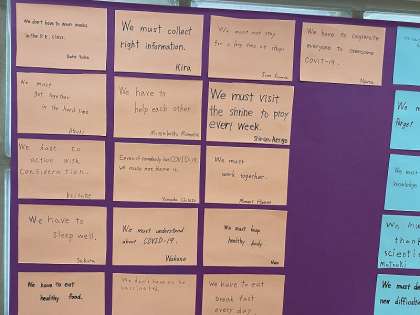 We don't have to wear masks
in the P.E. class.
We must collect
right information.
Kira
We must not stay
for a long time at shops
We have to cooperate
everyone to overcome
COVIT-19.
We must
get together
in the hard time
We have to
help each other
We must visit
the shrine to play
every week.
We have to
action with
consideration.
Keisuke
Even if somebody has COVID-19,
we must not blame it.
We must
work together.
We have to
sleep well.
Sakura
We must understand
about COVID-19.
Wakana
We must keep
healthy body.
We have to eat
healthy food.
We don't have to be
vaccinated.
We have to eat
break fast
every day
We m
forget
We must
knowledge
We mu
thank
scienti
Matsuki
We must d
new difficul